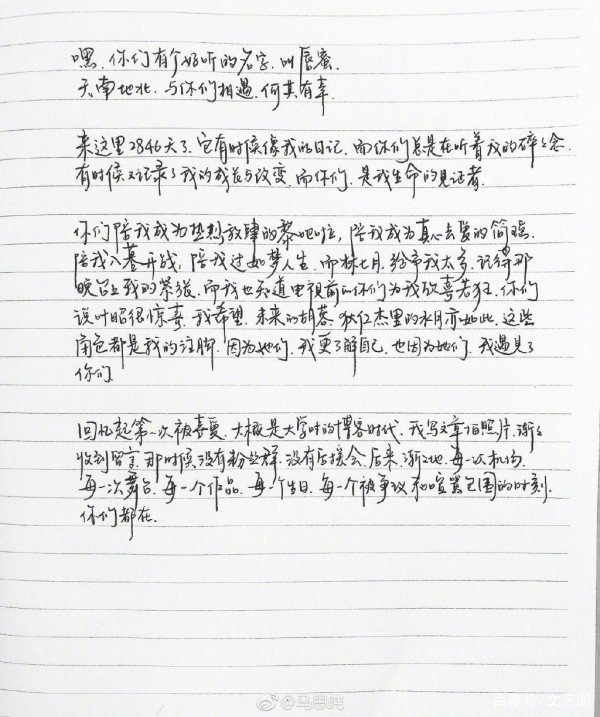 嘿、你们有个好听的名字、叫唇蜜、
天南地北、与你们相遇、何其有幸
来这里2846天了、它有时候像我的日记、而你们总是在听着我的碎碎念、
有时候又记录了我的成长与改变、而你们、是我生命的见证者、
你们陪我成为热烈放肆的黎吧啦，陪我成为真心去爱的简瑶、
陪我入墓开战，陪我过如梦人生、而林七月、给予我太多、记得那
晚台上我的紧张、而我也知道电视前的你们为我欣喜若狂、你们
说叶昭很惊喜、我希望、未来的胡蓉、狄仁杰里的水月亦如此、这些
角色都是我的注脚、因为她们、我更了解自己、也因为她们、我遇见了
你们、
回忆起第一次被喜爱、大概是大学时的博客时代、我写文章拍照片、渐々
收到留言、那时候没有粉丝群、没有后援会、后来、渐々地、每一次机场、
每一次舞台、每一个作品、每一个生日、每一个被争议和喧嚣包围的时刻、
你们都在、
@马思纯
百家号/文艺圈